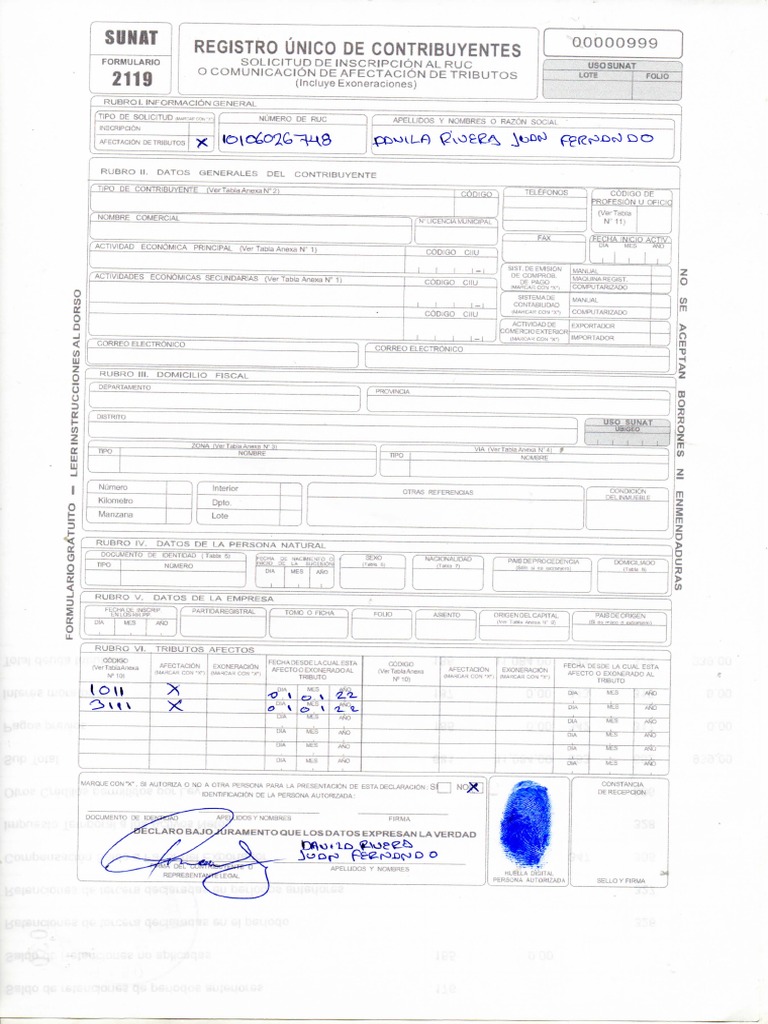 SUNAT
FORMULARIO
2119
REGISTRO ÚNICO DE CONTRIBUYENTES
SOLICITUD DE INSCRIPCIÓN AL RUC
O COMUNICACIÓN DE AFECTACIÓN DE TRIBUTOS
(Incluye Exoneraciones)
00000999
USO SUNAT
LOTE FOLIO
RUBRO I. INFORMACIÓN GENERAL
TIPO DE SOLICITUD (MARCAR CON "X") NÚMERO DE RUC APELLIDOS Y NOMBRES O RAZÓN SOCIAL
INSCRIPCIÓN
AFECTACIÓN DE TRIBUTOS X 10106026748 DAVILA RIVERA JUAN FERNANDO
RUBRO II. DATOS GENERALES DEL CONTRIBUYENTE
TIPO DE CONTRIBUYENTE (Ver Tabla Anexa N° 2) CÓDIGO TELÉFONOS CÓDIGO DE PROFESIÓN U OFICIO
(Ver Tabla N° 11)
NOMBRE COMERCIAL N° LICENCIA MUNICIPAL
FAX FECHA INICIO ACTIV.
DIA MES AÑO
ACTIVIDAD ECONÓMICA PRINCIPAL (Ver Tabla Anexa N° 1) CÓDIGO CIIU
SIST. DE EMISIÓN DE COMPROB. DE PAGO (MARCAR CON "X") MANUAL
MAQUINA REGIST.
COMPUTARIZADO
ACTIVIDADES ECONÓMICAS SECUNDARIAS (Ver Tabla Anexa N° 1) CÓDIGO CIIU
SISTEMA DE CONTABILIDAD (MARCAR CON "X") MANUAL
COMPUTARIZADO
CÓDIGO CIIU
ACTIVIDAD DE COMERCIO EXTERIOR (MARCAR CON "X") EXPORTADOR
IMPORTADOR
CORREO ELECTRÓNICO CORREO ELECTRÓNICO
RUBRO III. DOMICILIO FISCAL
DEPARTAMENTO PROVINCIA
DISTRITO USO SUNAT
UBIGEO
ZONA (Ver Tabla Anexa N° 3) VIA (Ver Tabla Anexa N° 4)
TIPO NOMBRE TIPO NOMBRE
Número Interior OTRAS REFERENCIAS CONDICIÓN DEL INMUEBLE
Kilometro Dpto.
Manzana Lote
RUBRO IV. DATOS DE LA PERSONA NATURAL
DOCUMENTO DE IDENTIDAD (Tabla 5) FECHA DE NACIMIENTO O INICIO DE LA SUCESIÓN SEXO NACIONALIDAD PAIS DE PROCEDENCIA DOMICILIADO
TIPO NÚMERO DIA MES AÑO
RUBRO V. DATOS DE LA EMPRESA
FECHA DE INSCRIP. EN LOS RR.PP. PARTIDA REGISTRAL TOMO O FICHA FOLIO ASIENTO ORIGEN DEL CAPITAL PAIS DE ORIGEN
DÍA MES AÑO
RUBRO VI. TRIBUTOS AFECTOS
CÓDIGO (Ver Tabla Anexa N° 10) AFECTACIÓN (MARCAR CON "X") EXONERACIÓN (MARCAR CON "X") FECHA DESDE LA CUAL ESTA AFECTO O EXONERADO AL TRIBUTO CÓDIGO (Ver Tabla Anexa N° 10) AFECTACIÓN (MARCAR CON "X") EXONERACIÓN (MARCAR CON "X") FECHA DESDE LA CUAL ESTA AFECTO O EXONERADO AL TRIBUTO
1011 X DIA MES AÑO 01 01 22 DIA MES AÑO
3111 X DIA MES AÑO 01 01 22 DIA MES AÑO
DIA MES AÑO DIA MES AÑO
DIA MES AÑO DIA MES AÑO
DIA MES AÑO DIA MES AÑO
MARQUE CON "X", SI AUTORIZA O NO A OTRA PERSONA PARA LA PRESENTACIÓN DE ESTA DECLARACIÓN: SI NO X
IDENTIFICACIÓN DE LA PERSONA AUTORIZADA:
DOCUMENTO DE IDENTIDAD APELLIDOS Y NOMBRES FIRMA
DECLARO BAJO JURAMENTO QUE LOS DATOS EXPRESAN LA VERDAD
DAVILA RIVERA
JUAN FERNANDO
REPRESENTANTE LEGAL APELLIDOS Y NOMBRES
HUELLA DIGITAL
PERSONA AUTORIZADA
CONSTANCIA
DE RECEPCIÓN
SELLO Y FIRMA
FORMULARIO GRATUITO – LEER INSTRUCCIONES AL DORSO
NO SE ACEPTAN BORRONES NI ENMENDADURAS